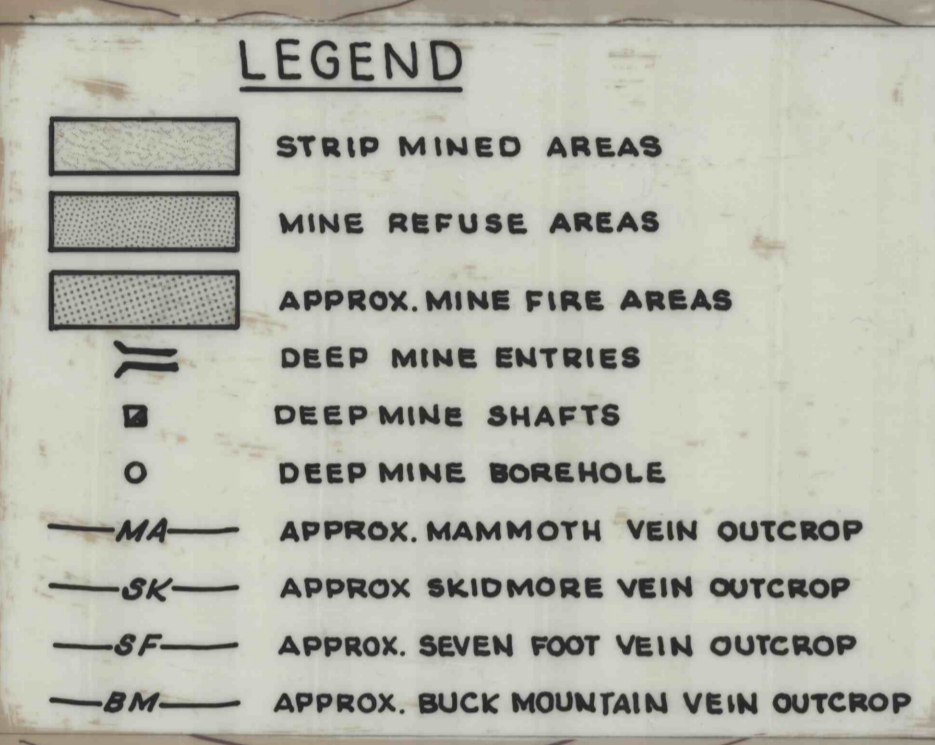 LEGEND
STRIP MINED AREAS
MINE REFUSE AREAS
APPROX. MINE FIRE AREAS
DEEP MINE ENTRIES
DEEP MINE SHAFTS
DEEP MINE BOREHOLE
MA APPROX. MAMMOTH VEIN OUTCROP
SK APPROX SKIDMORE VEIN OUTCROP
SF APPROX. SEVEN FOOT VEIN OUTCROP
BM APPROX. BUCK MOUNTAIN VEIN OUTCROP